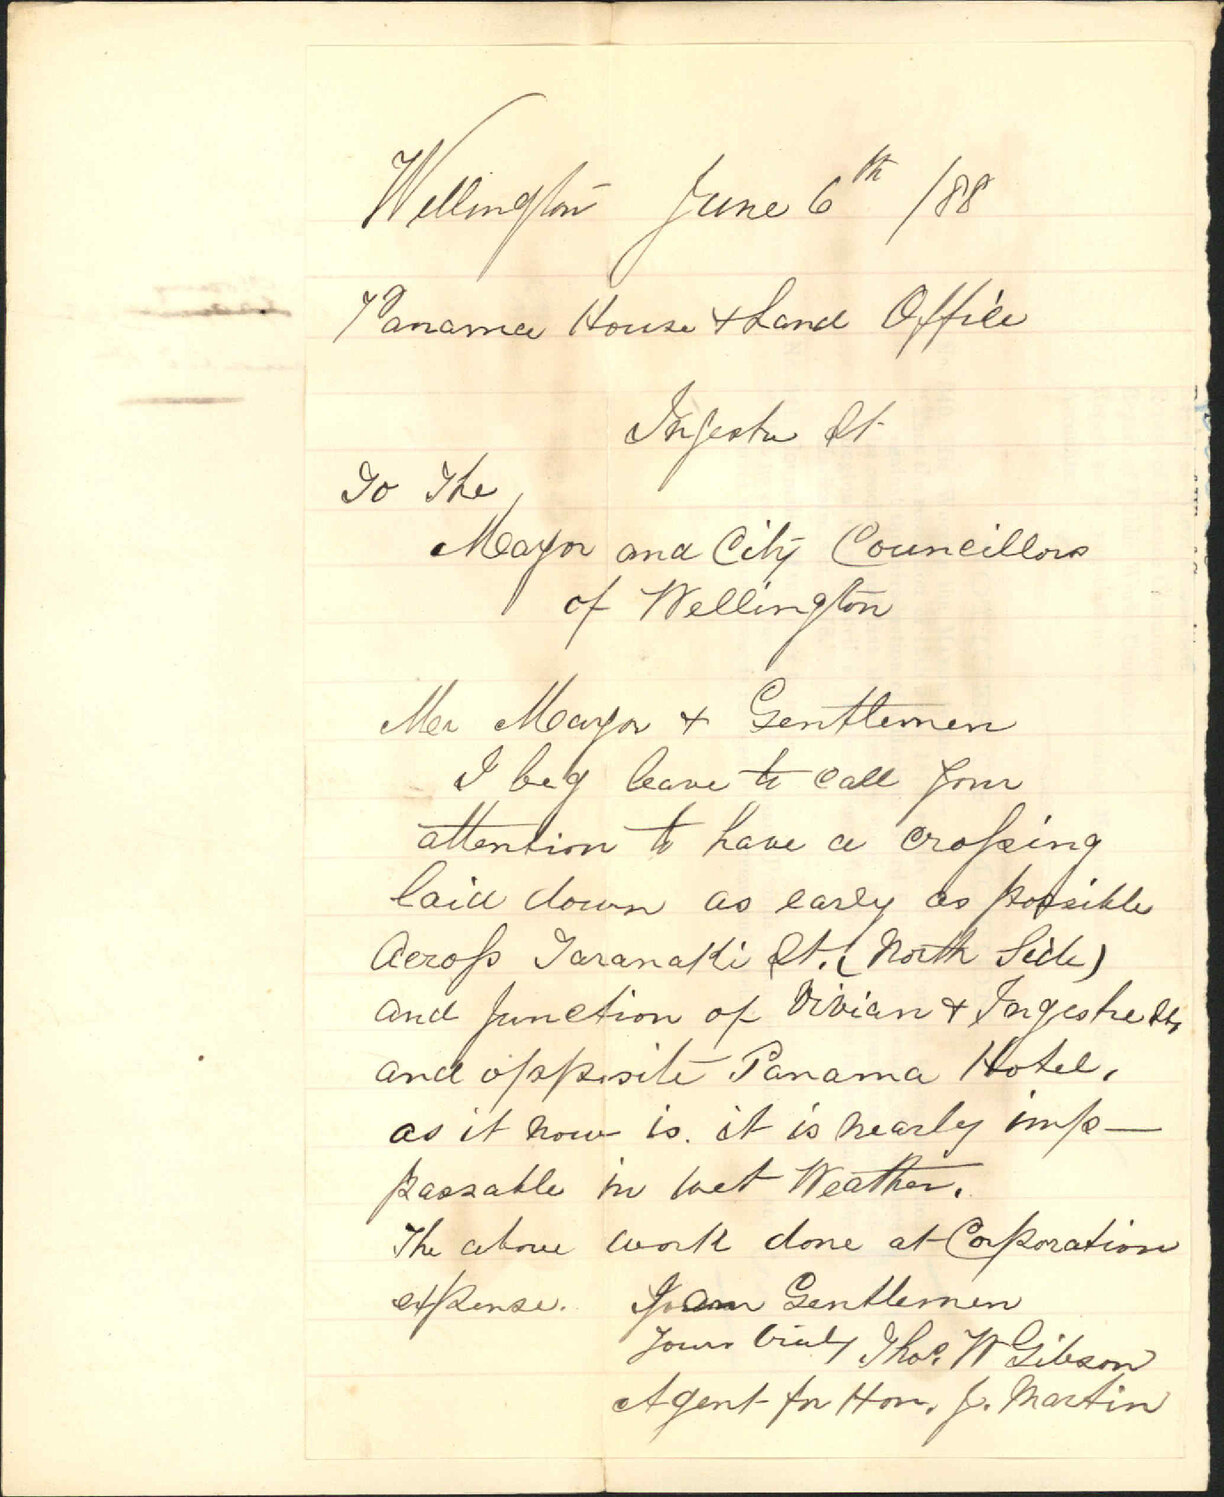 Wellington June 6th /88
Panama House & Land Office
Ingestre St
To The
Mayor and City Councillors
of Wellington
Mr Mayor & Gentlemen
I beg leave to call your
attention to have a crossing
laid down as early as possible
Across Taranaki St. (North Side)
and junction of Vivian & Ingestre Sts
and opposite Panama Hotel,
as it now is. it is nearly imp—
passable in wet Weather.
The above work done at Corporation
expense. I am Gentlemen
Yours truly Thos. W Gibson
Agent for Hon. J. Martin